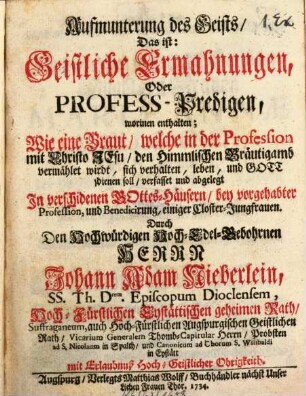 Aufmunterung des Geists/
1. Ex.
Das ist:
Geistliche Ermahnungen,
Oder
PROFESS-Predigen,
worinen enthalten;
Wie eine Braut/ welche in der Profession
mit Christo JEsu/ den Himmlischen Bräutigamb
vermählet wirdt, sich verhalten, leben, und GOTT
dienen soll/ verfasset und abgelegt
In verschidenen GOttes-Häusern/ bey vorgehabter
Profession, und Benedicirung, einiger Closter-Jungfrauen.
Durch
Den Hochwürdigen Hoch-Edel-Gebohrnen
HERRN
Johann Adam Nieberlein,
SS. Th. Drem. Episcopum Dioclensem,
Hoch-Fürstlichen Eystättischen geheimen Rath/
Suffraganeum, auch Hoch-Fürstlichen Augspurgischen Geistlichen
Rath/ Vicarium Generalem Thombs-Capitular Herrn/ Probsten
ad S. Nicolaum in Spalth/ und Canonicum ad Chorum S. Wilibaldi
in Eystätt
mit Erlaubnuß Hoch/ Geistlicher Obrigkeith.
Augspurg/ Verlegts Matthias Wolff/ Buchhändler nächst Unser
Lieben Frauen Thor. 1734.